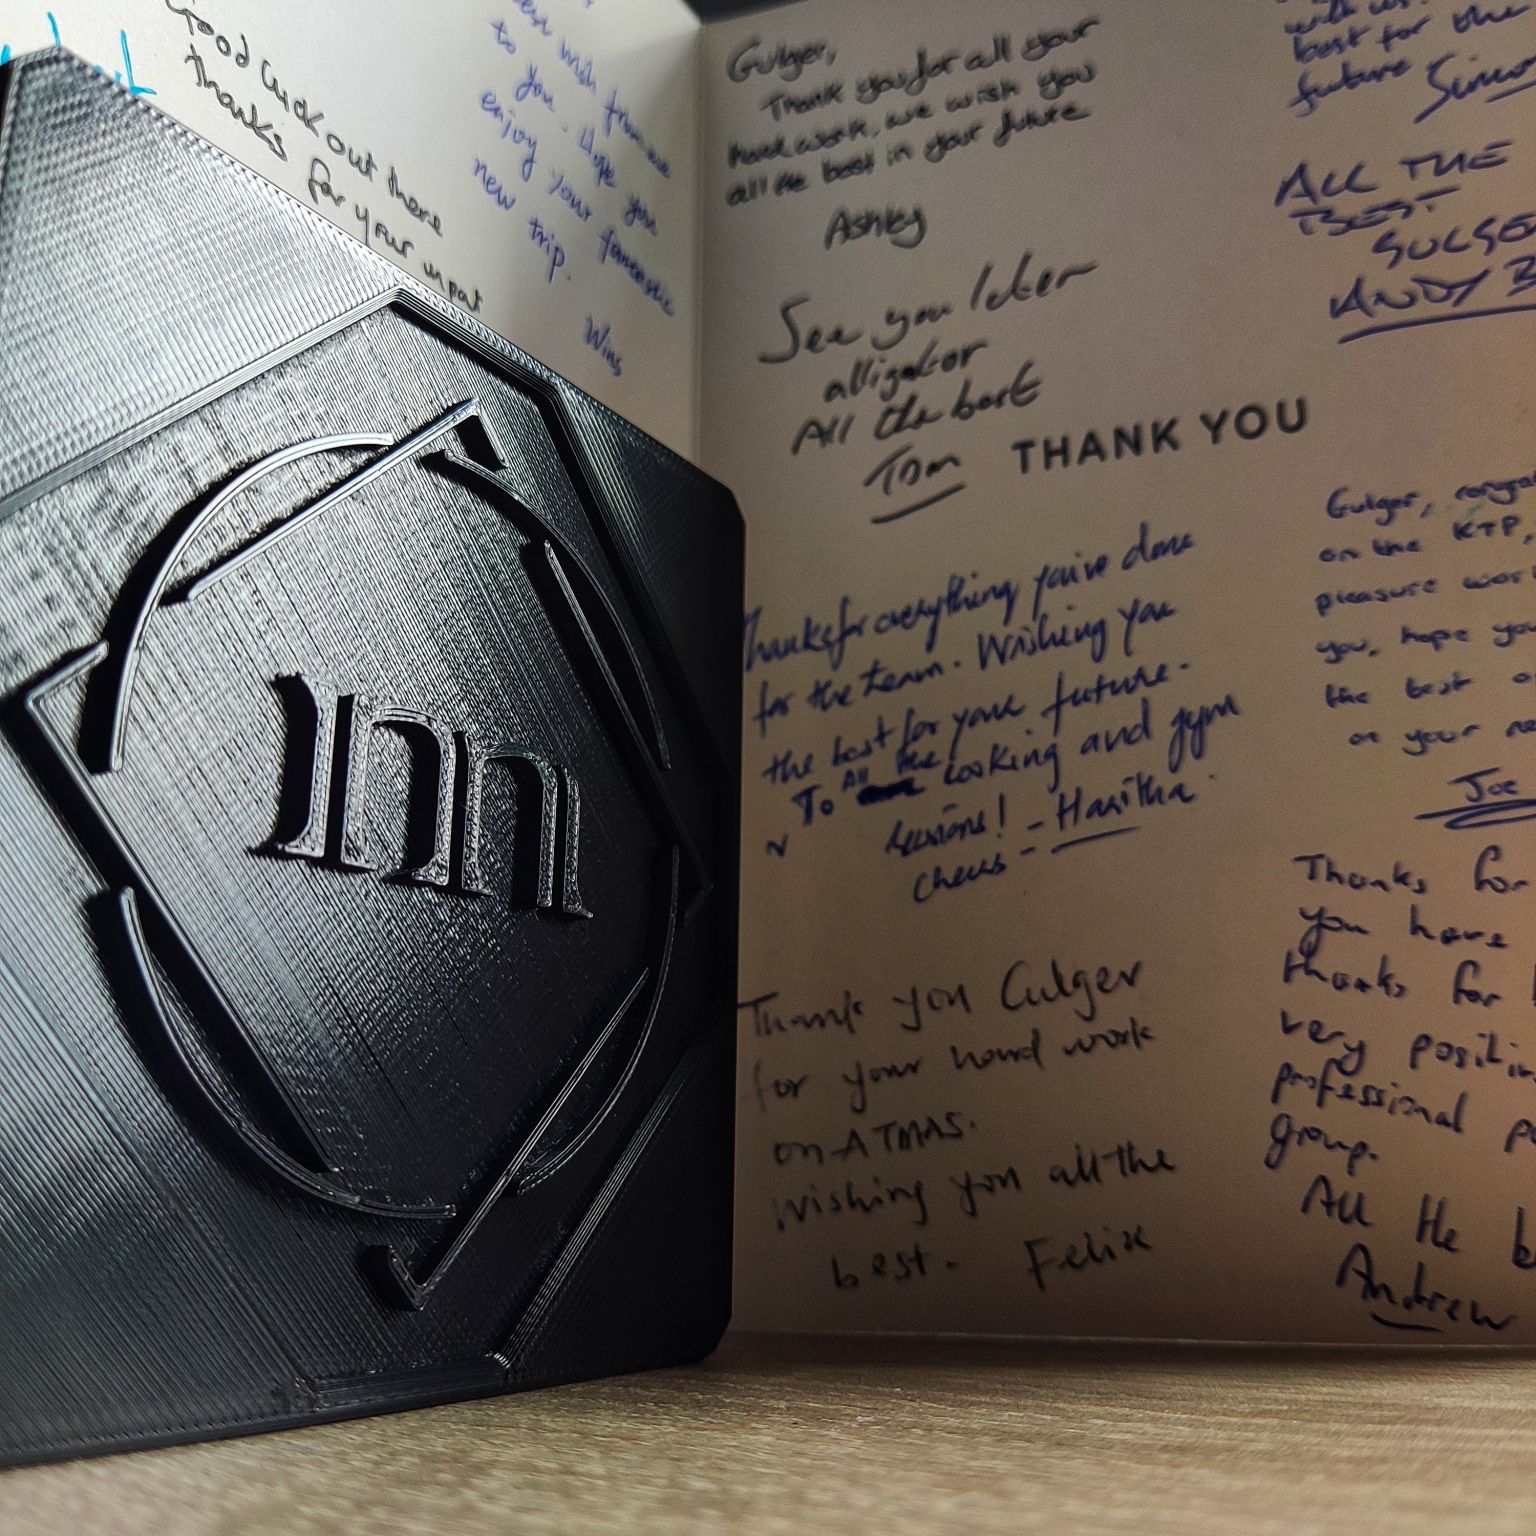 Good luck out there
thanks for your input
to you. Hope you
enjoy your fantastic
new trip.
Wins
Gulger,
Thank you for all your
hard work, we wish you
all the best in your future
Ashley
See you later
alligator
All the best
Tom
THANK YOU
Thanks for everything you've done
for the team. Wishing you
the best for your future.
To All the cooking and gym
sessions! - Haritha
cheers -
Thank you Gulger
for your hard work
on ATMAS.
Wishing you all the
best. Felix
best for the
future
ALL THE
BEST
ANDY B
Gulger,
on the KTP,
pleasure
you, hope you
the best
on your
Joe
Thanks for
you have
thanks for
very
professional
group.
All the
Andrew
nn